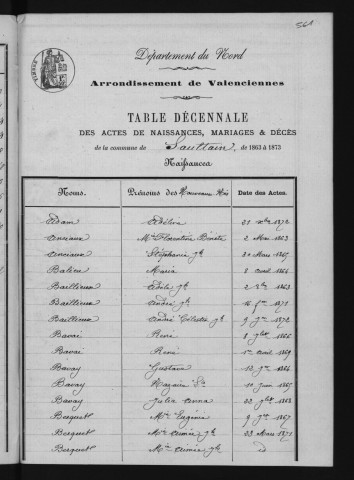 561
TIMBRE
Département du Nord
Arrondissement de Valenciennes
TABLE DÉCENNALE
DES ACTES DE NAISSANCES, MARIAGES & DÉCÈS
de la commune de Saultain, de 1863 à 1873
Naissances
Noms. Prénoms des Nouveaux Nés Date des Actes.
Adam Adeline 21 xbre 1872
Anciaux Mie Florentine Bénite 2 Mai 1863
Anciaux Stéphanie Jh 20 Mars 1867
Maria 8 avril 1864
Bailleux Adèle Jh 2 1863
Bailleux André Jh 16 1871
Bailleux André Célestin Jh 9 1872
Bavai René 8 9bre 1866
Bavai René 1er avril 1869
Bavay Gustave 13 1864
Bavay Nazaire 10 Juin 1867
Bavay Julia Anna 22 9bre 1868
Berquet Mie Eugénie 9 1867
Berquet Mie Aimée Jh 23 Mars 1871
Berquet Mie Aimée Jh d